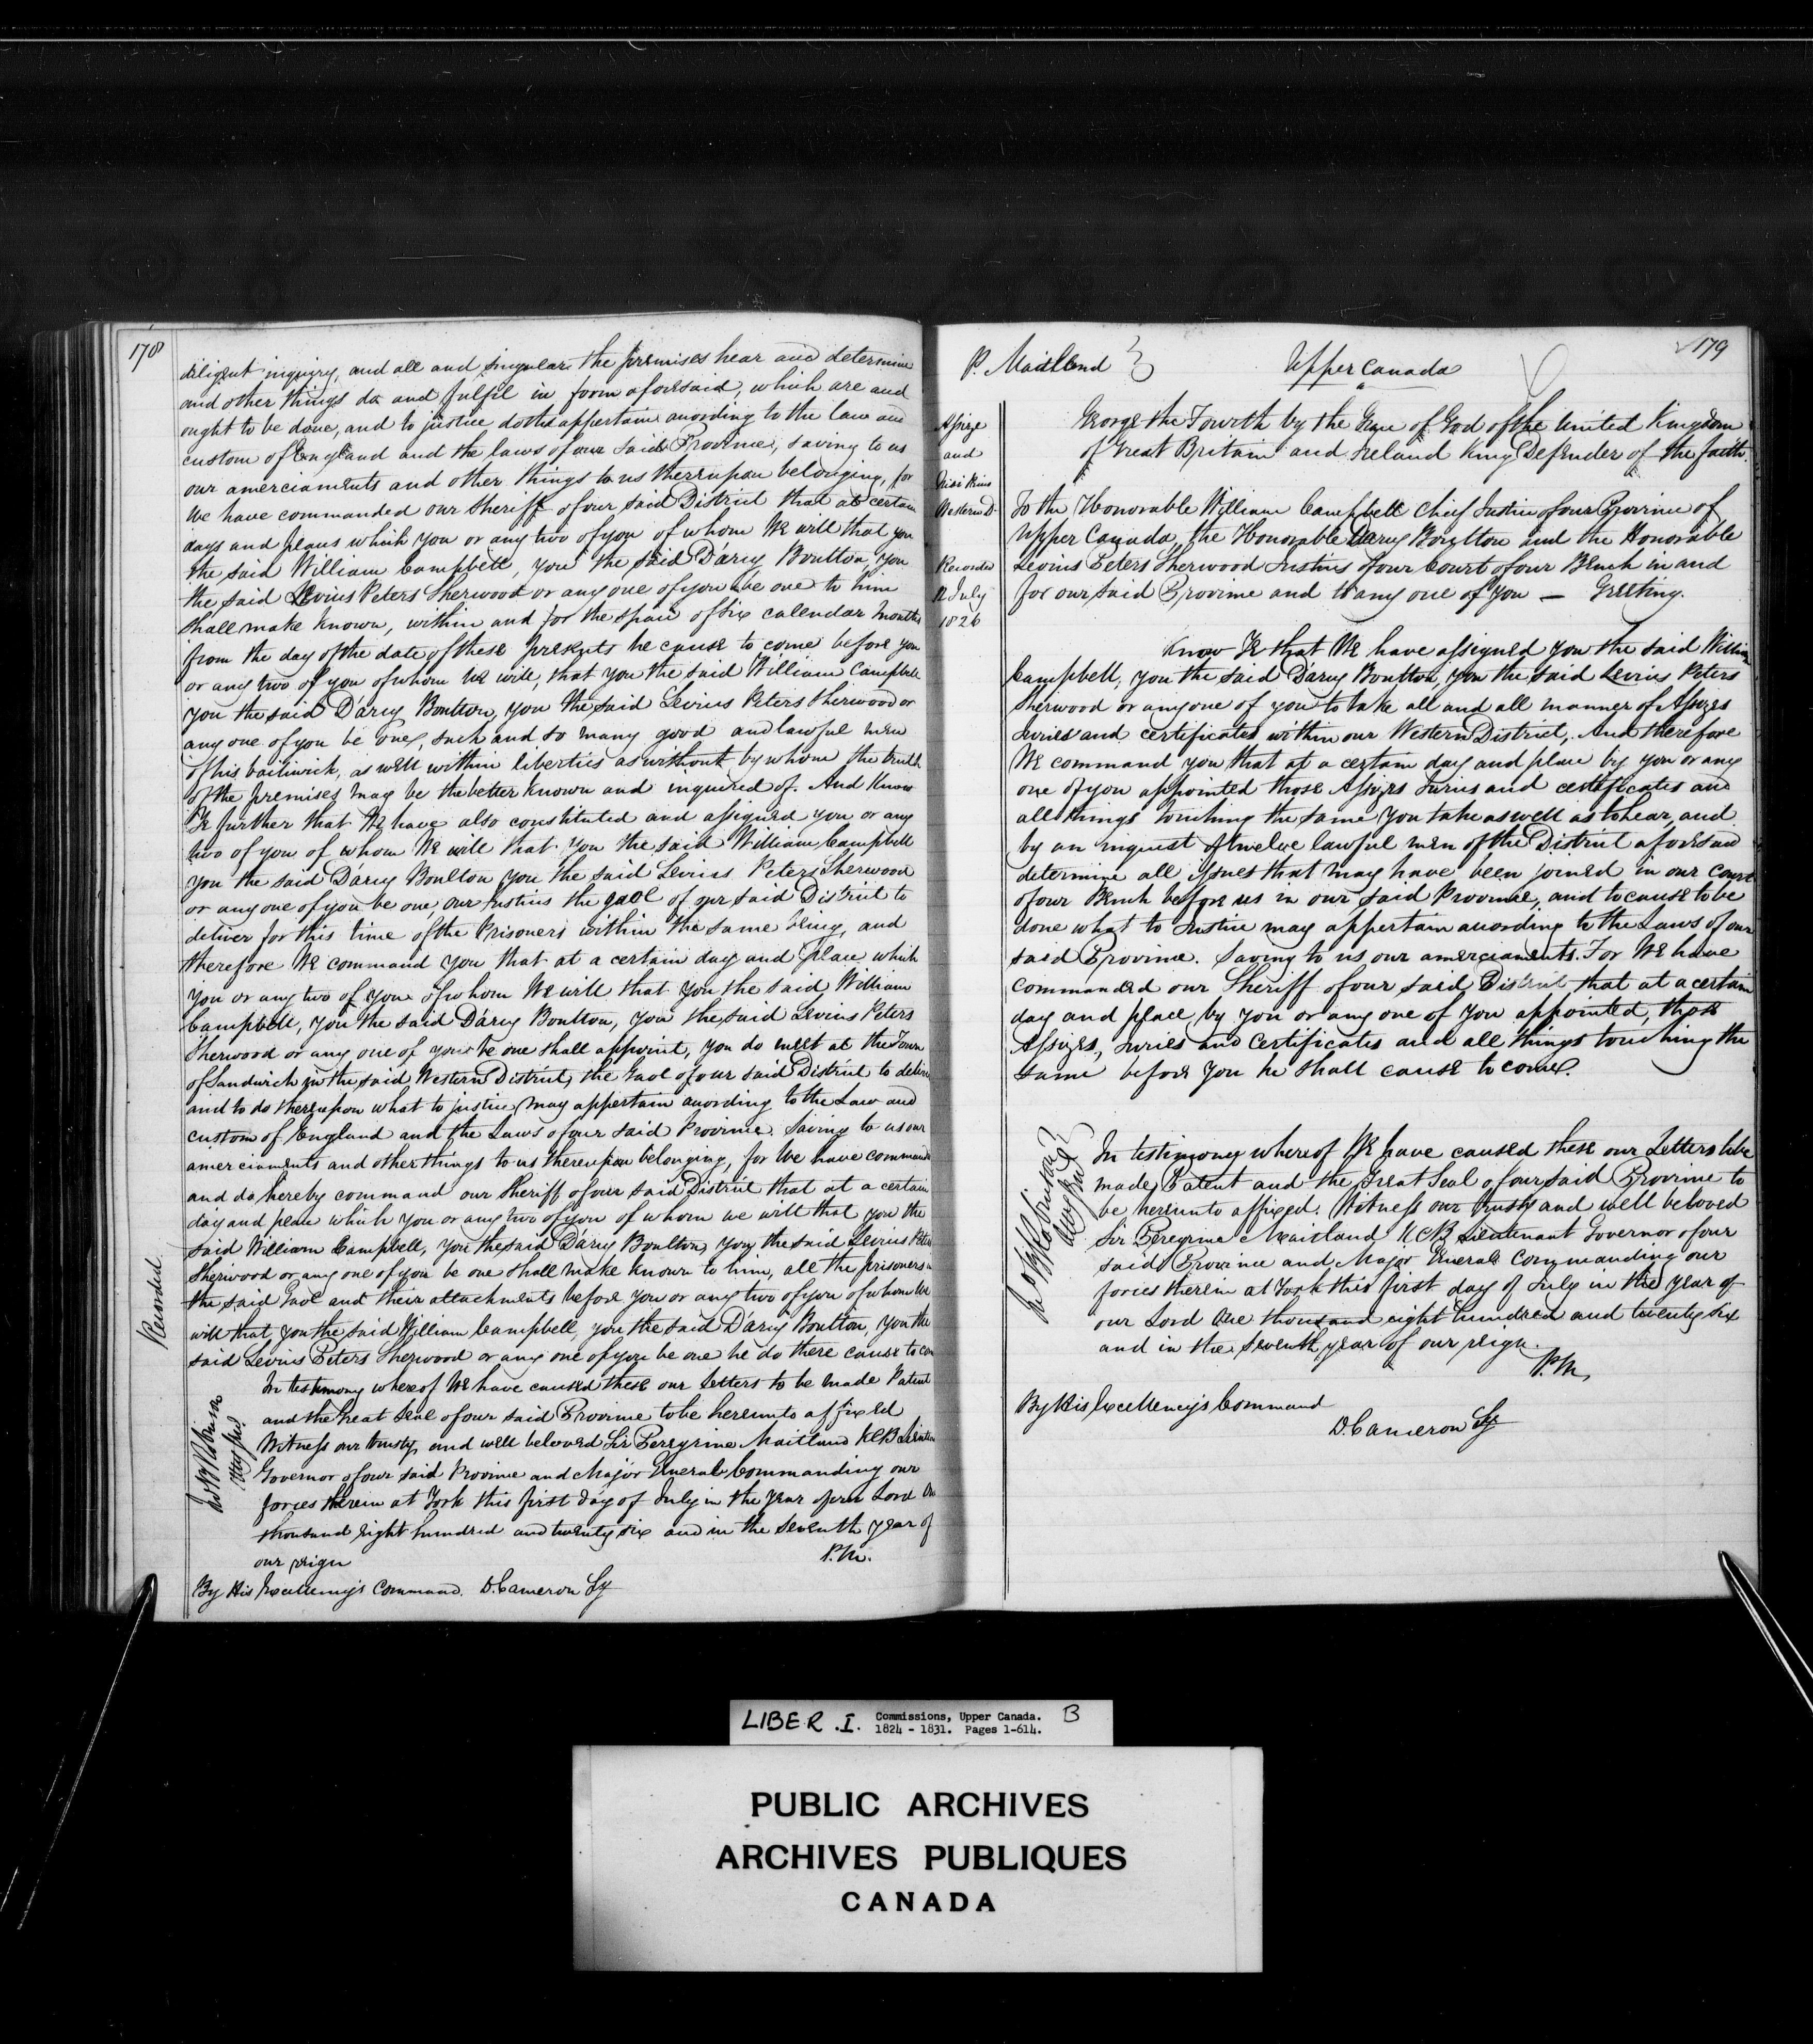 178
diligent inquiry, and all and singular the premises hear and determine
and other things do and fulfil in form aforesaid, which are and
ought to be done, and to justice doth appertain according to the law and
custom of England and the laws of our said Province, saving to us
our amerciaments and other things to us thereupon belonging, for
We have commanded our Sheriff of our said District that at certain
days and places which you or any two of you of whom We will that you
the said William Campbell, you the said D'arcy Boulton, you
the said Levius Peters Sherwood or any one of you be one to him
shall make known, within and for the space of six calendar months
from the day of the date of these presents he cause to come before you
or any two of you of whom We will, that you the said William Campbell
you the said D'arcy Boulton, you the said Levius Peters Sherwood or
any one of you be one, such and so many good and lawful men
of his bailiwick, as well within liberties as without by whom the truth
of the premises may be the better known and inquired of. And Know
Ye further that We have also constituted and assigned you or any
two of you of whom We will that you the said William Campbell
you the said D'arcy Boulton you the said Levius Peters Sherwood
or any one of you be one, our Justices the gaol of our said District to
deliver for this time of the Prisoners within the same being, and
therefore We command you that at a certain day and place which
you or any two of you of whom We will that you the said William
Campbell, you the said D'arcy Boulton, you the said Levius Peters
Sherwood or any one of you be one shall appoint, you do meet at the Town
of Sandwich in the said Western District, the Gaol of our said District to deliver
and to do thereupon what to justice may appertain according to the Law and
custom of England and the Laws of our said Province. Saving to us our
amerciaments and other things to us thereupon belonging, for We have commanded
and do hereby command our Sheriff of our said District that at a certain
day and place which you or any two of you of whom we will that you the
said William Campbell, you the said D'arcy Boulton, you the said Levius Peters
Sherwood or any one of you be one shall make known to him, all the prisoners in
the said Gaol and their attachments before you or any two of you of whom We
will that you the said William Campbell, you the said D'arcy Boulton, you the
said Levius Peters Sherwood or any one of you be one he do there cause to come
Recorded
In testimony whereof We have caused these our Letters to be made Patent
and the Great Seal of our said Province to be hereunto affixed
Witness our trusty and well beloved Sir Peregrine Maitland KCB Lieutenant
Governor of our said Province and Major General Commanding our
forces therein at York this first day of July in the Year of our Lord One
thousand eight hundred and twenty six and in the Seventh year of
our reign
P.M.
By His Excellency's Command. D. Cameron Sy
179
P. Maitland
Upper Canada
Assize
and
Nisi Prius
Western D.
Recorded
12 July
1826
George the Fourth by the Grace of God of the United Kingdom
of Great Britain and Ireland King Defender of the faith.
To the Honorable William Campbell Chief Justice of our Province of
Upper Canada, the Honorable Darcy Boulton and the Honorable
Levius Peters Sherwood Justices of our Court of our Bench in and
for our said Province and to any one of you — Greeting.
Know Ye that We have assigned you the said William
Campbell, you the said D'arcy Boulton, you the said Levius Peters
Sherwood or anyone of you to take all and all manner of Assizes
Juries and certificates within our Western District, And therefore
We command you that at a certain day and place by you or any
one of you appointed those Assizes Juries and certificates and
all things touching the same you take as well as to hear, and
by an inquest of twelve lawful men of the District aforesaid
determine all issues that may have been joined in our Court
of our Bench before us in our said Province, and to cause to be
done what to Justice may appertain according to the Laws of our
said Province. Saving to us our amerciaments. For We have
commanded our Sheriff of our said District that at a certain
day and place by you or any one of you appointed, those
Assizes, Juries and Certificates and all things touching the
same before you he shall cause to come.
In testimony whereof We have caused these our Letters to be
made Patent and the Great Seal of our said Province to
be hereunto affixed. Witness our trusty and well beloved
Sir Peregrine Maitland KCB Lieutenant Governor of our
said Province and Major General Commanding our
forces therein at York this first day of July in the year of
our Lord One thousand eight hundred and twenty six
and in the seventh year of our reign.
P.M.
By His Excellency's Command
D. Cameron Sy
LIBER .I. Commissions, Upper Canada. B
1824 - 1831. Pages 1-614.
PUBLIC ARCHIVES
ARCHIVES PUBLIQUES
CANADA